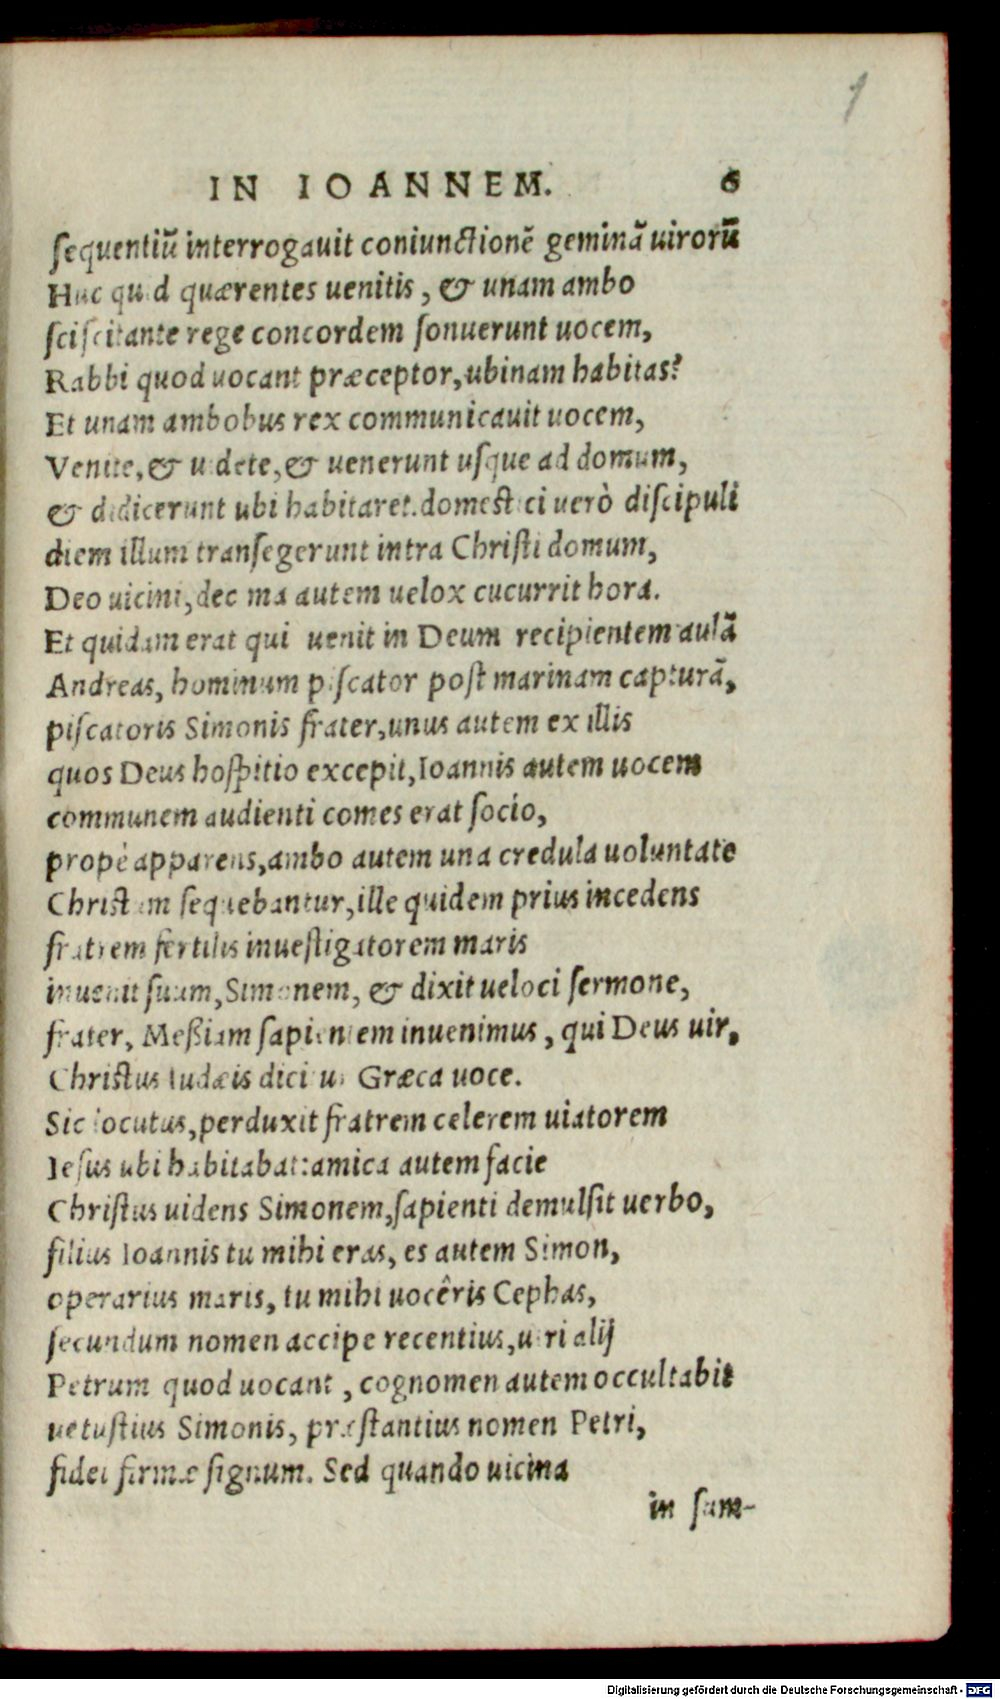 1
IN IOANNEM. 6
ſequentiũ interrogauit coniunctionẽ geminã uirorũ
Huc quid quærentes uenitis, & unam ambo
ſciſcitante rege concordem ſonuerunt uocem,
Rabbi quod uocant præceptor, ubinam habitas?
Et unam ambobus rex communicauit uocem,
Venite, & uidete, & uenerunt uſque ad domum,
& didicerunt ubi habitaret. domestici uerò diſcipuli
diem illum tranſegerunt intra Chriſti domum,
Deo uicini, decima autem uelox cucurrit hora.
Et quidam erat qui uenit in Deum recipientem aulã
Andreas, hominum piſcator poſt marinam capturã,
piſcatoris Simonis frater, unus autem ex illis
quos Deus hoſpitio excepit, Ioannis autem uocem
communem audienti comes erat ſocio,
propè apparens, ambo autem una credula uoluntate
Christum ſequebantur, ille quidem prius incedens
fratrem fertilis inueſtigatorem maris
inuenit ſuum, Simonem, & dixit ueloci ſermone,
frater, Meßiam ſapientem inuenimus, qui Deus uir,
Christus Iudæis dicitur Græca uoce.
Sic locutus, perduxit fratrem celerem uiatorem
Ieſus ubi habitabat: amica autem facie
Chriſtus uidens Simonem, ſapienti demulſit uerbo,
filius Ioannis tu mihi eras, es autem Simon,
operarius maris, tu mihi uocêris Cephas,
ſecundum nomen accipe recentius, uiri alij
Petrum quod uocant, cognomen autem occultabit
uetuſtius Simonis, præſtantius nomen Petri,
fidei firmæ ſignum. Sed quando uicina
in ſum-
Digitalisierung gefördert durch die Deutsche Forschungsgemeinschaft - DFG